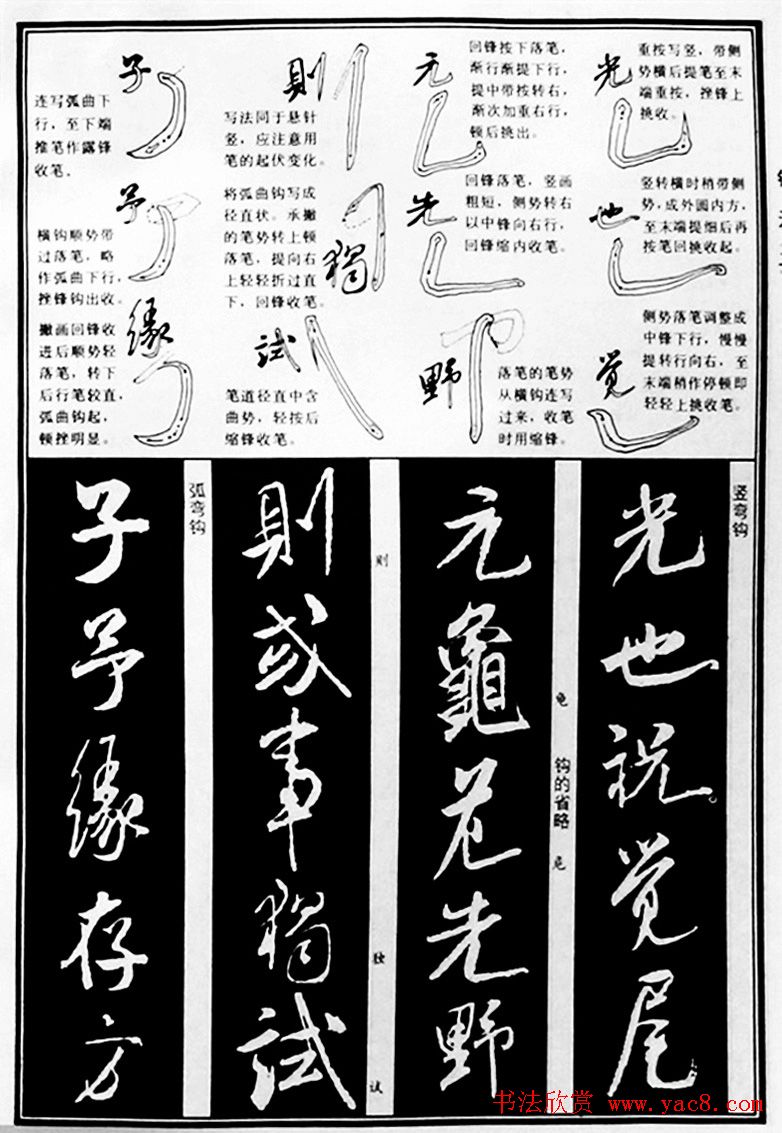 光
重按写竖，带侧
势横后提笔至末
端重按，挫锋上
挑收。
也
竖转横时稍带侧
势，成外圆内方，
至末端提细后再
按笔回挑收起。
觉
侧势落笔调整成
中锋下行，慢慢
提转行向右，至
末端稍作停顿即
轻轻上挑收笔。
元
回锋按下落笔，
渐行渐提下行，
提中带按转右，
渐次加重右行，
顿后挑出。
先
回锋落笔，竖画
粗短，侧势转右
以中锋向右行，
回锋缩内收笔。
野
落笔的笔势
从横钩连写
过来，收笔
时用缩锋。
則
写法同于悬针
竖，应注意用
笔的起伏变化。
獨
将弧曲钩写成
径直状。承撇
的笔势转上顿
落笔，提向右
上轻轻折过直
下，回锋收笔。
試
笔道径直中含
曲势，轻按后
缩锋收笔。
子
连写弧曲下
行，至下端
推笔作露锋
收笔。
予
横钩顺势带
过落笔，略
作弧曲下行，
挫锋钩出收。
緣
撇画回锋收
进后顺势轻
落笔，转下
后行笔较直，
弧曲钩起，
顿挫明显。
竖弯钩
光也祝觉尾
钩的省略
元龜苑先野
则
独
试
則或事獨試
弧弯钩
子予緣存方
书法欣赏 www.yac8.com